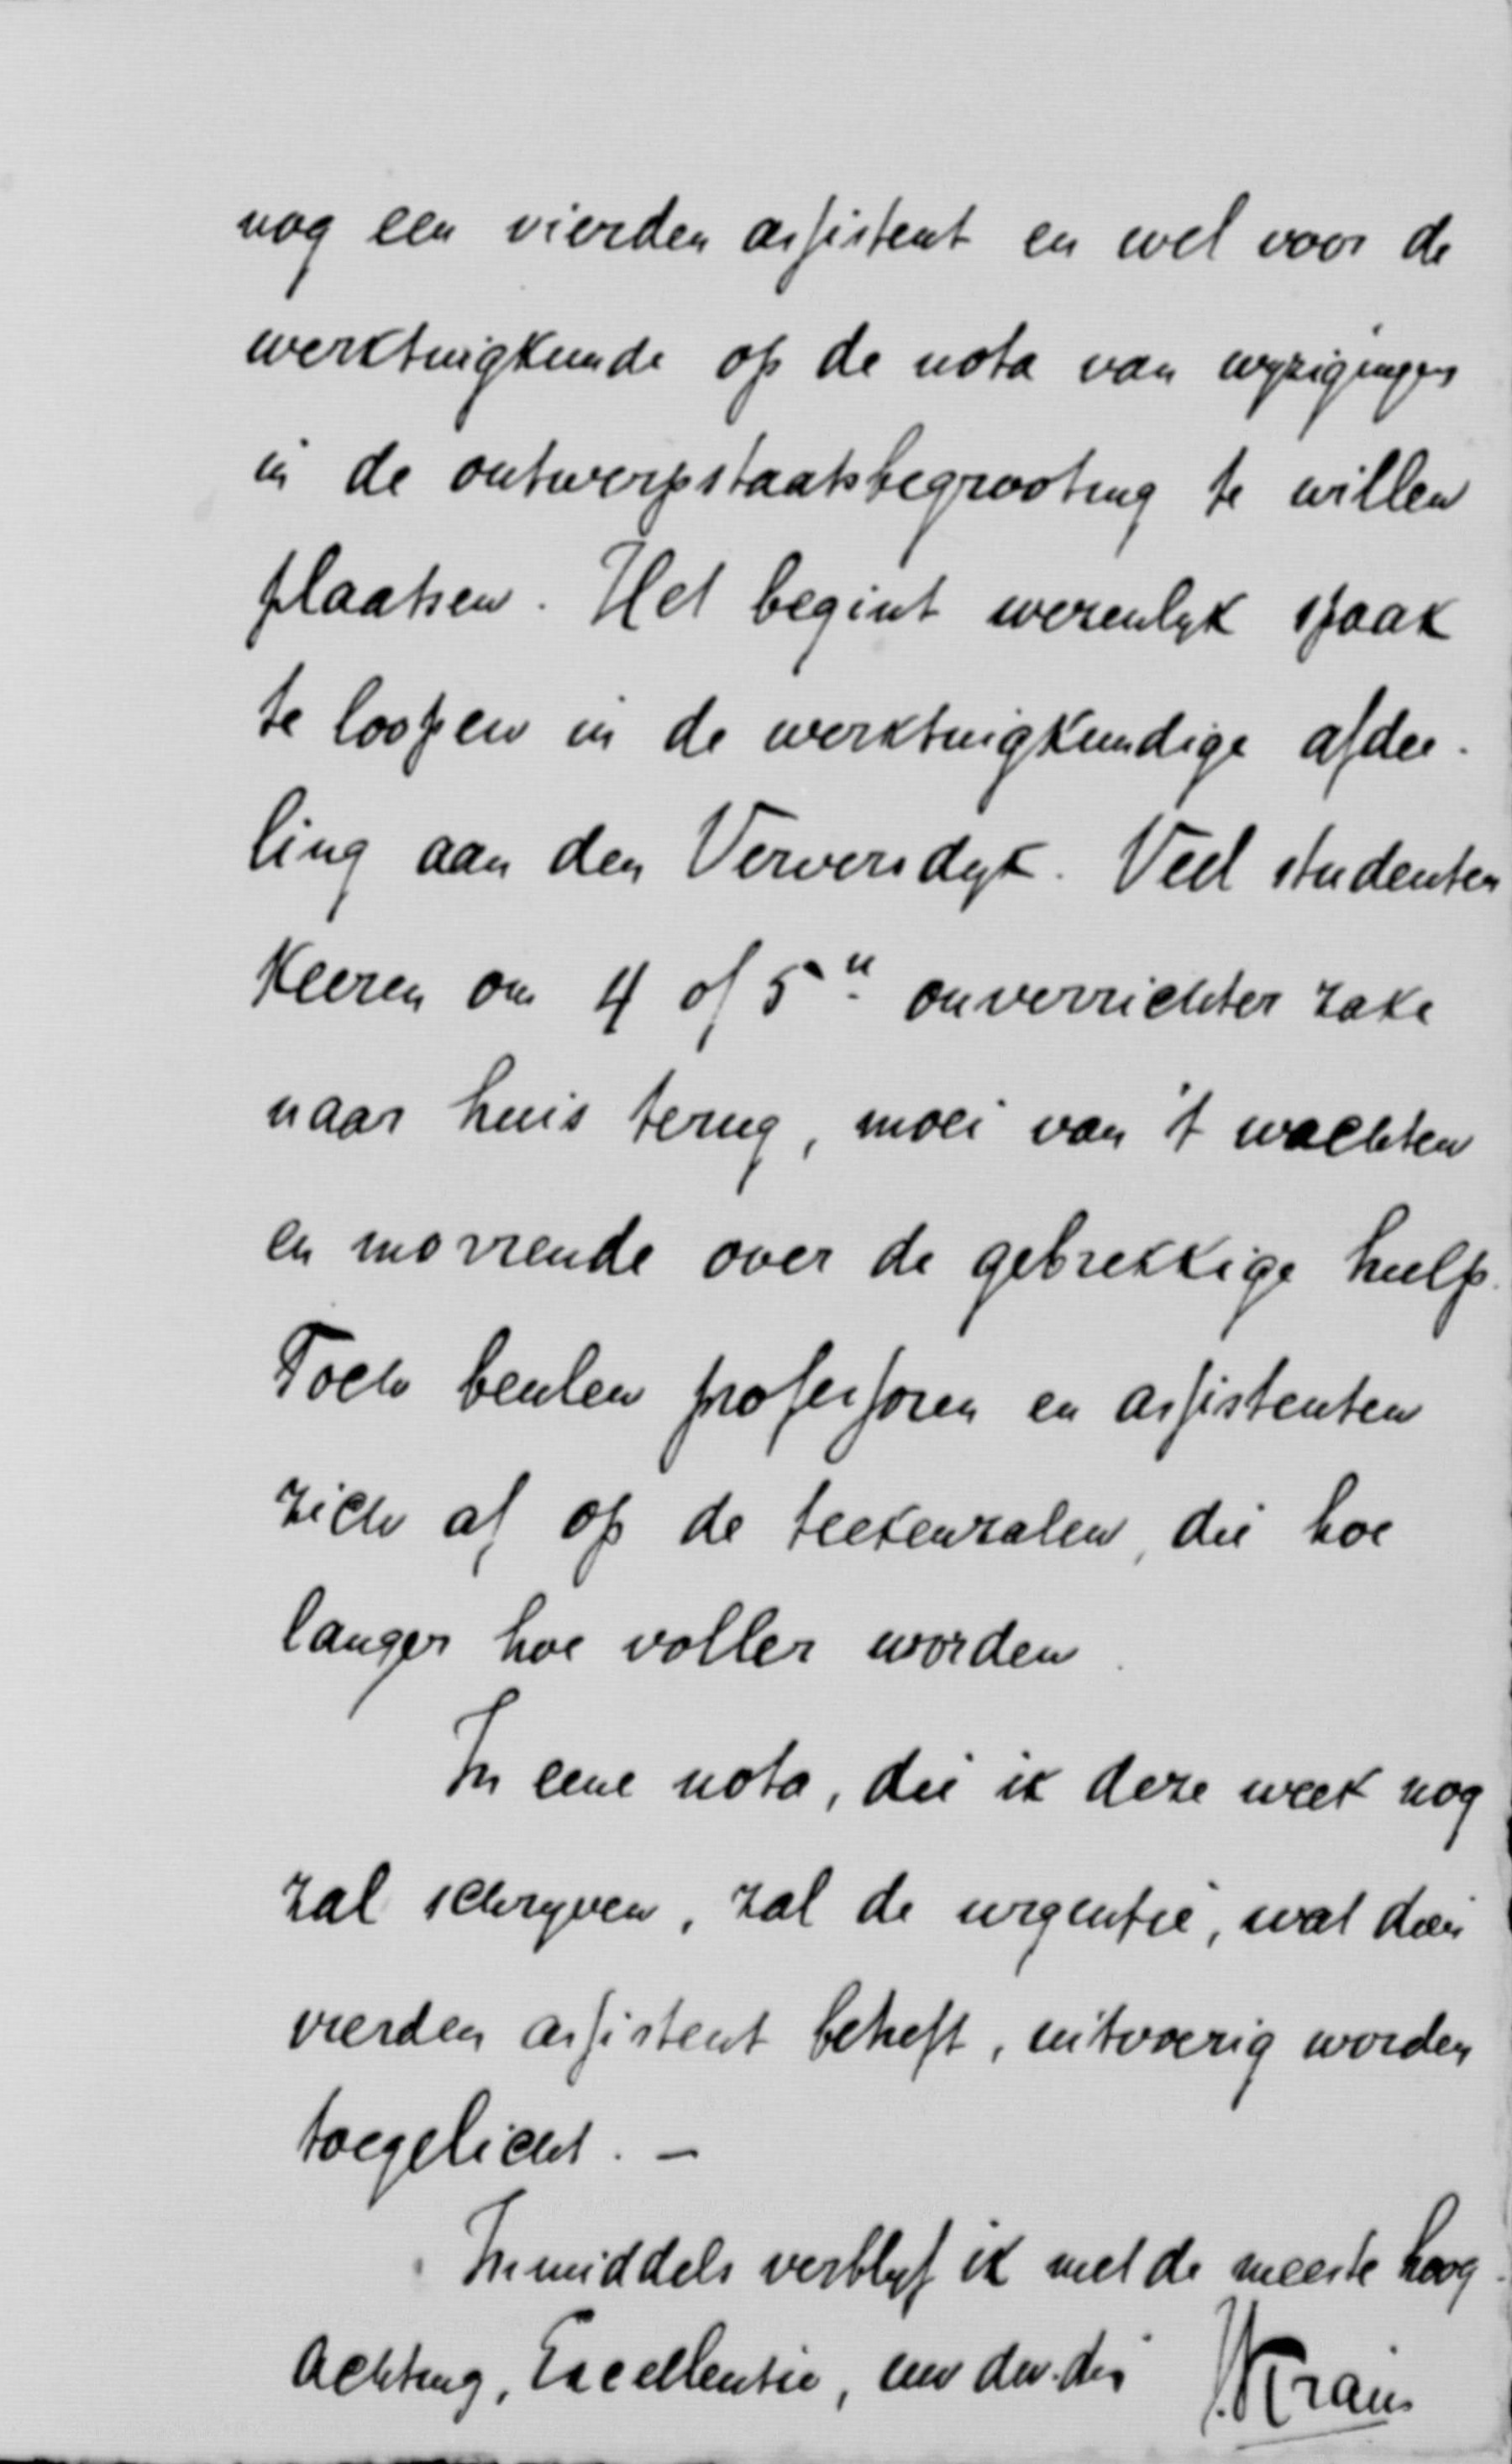 nog een vierden assistent en wel voor de
werktuigkunde op de nota van wijzigingen
in de ontwerpstaatsbegrooting te willen
plaatsen. Het begint wezenlijk spaak
te loopen in de werktuigkundige afdee-
ling aan den Verversdijk. Veel studenten
keeren om 4 of 5 u onverrichter zake
naar huis terug, moei van 't wachten
en morrende over de gebrekkige hulp.
Toch beulen professoren en assistenten
zich af op de teekenzalen, die hoe
langer hoe voller worden.
In eene nota, die ik deze week nog
zal schrijven, zal de urgentie, wat dien
vierden assistent betreft, uitvoerig worden
toegelicht. —
Inmiddels verblijf ik met de meeste hoog-
achting, Excellentie, uw dw. dr J. Kraus